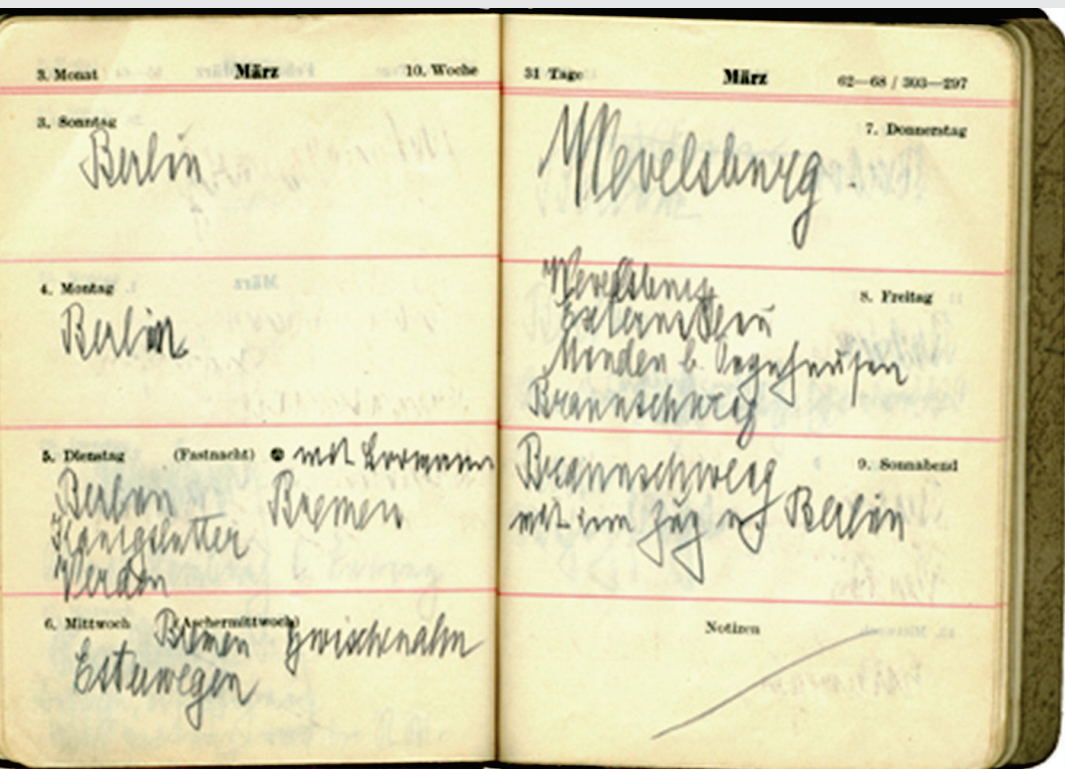 3. Monat März 10. Woche
3. Sonntag
Berlin
4. Montag
Berlin
5. Dienstag (Fastnacht) mit
Berlin Bremen
Königslutter
Verden
6. Mittwoch (Aschermittwoch)
Bremen Zwischenahn
Esterwegen
31 Tage März 62—68 / 303—297
7. Donnerstag
Wevelsburg
8. Freitag
Wevelsburg
Externstein
Minden b.
Braunschweig
9. Sonnabend
Braunschweig
mit dem Zug Berlin
Notizen